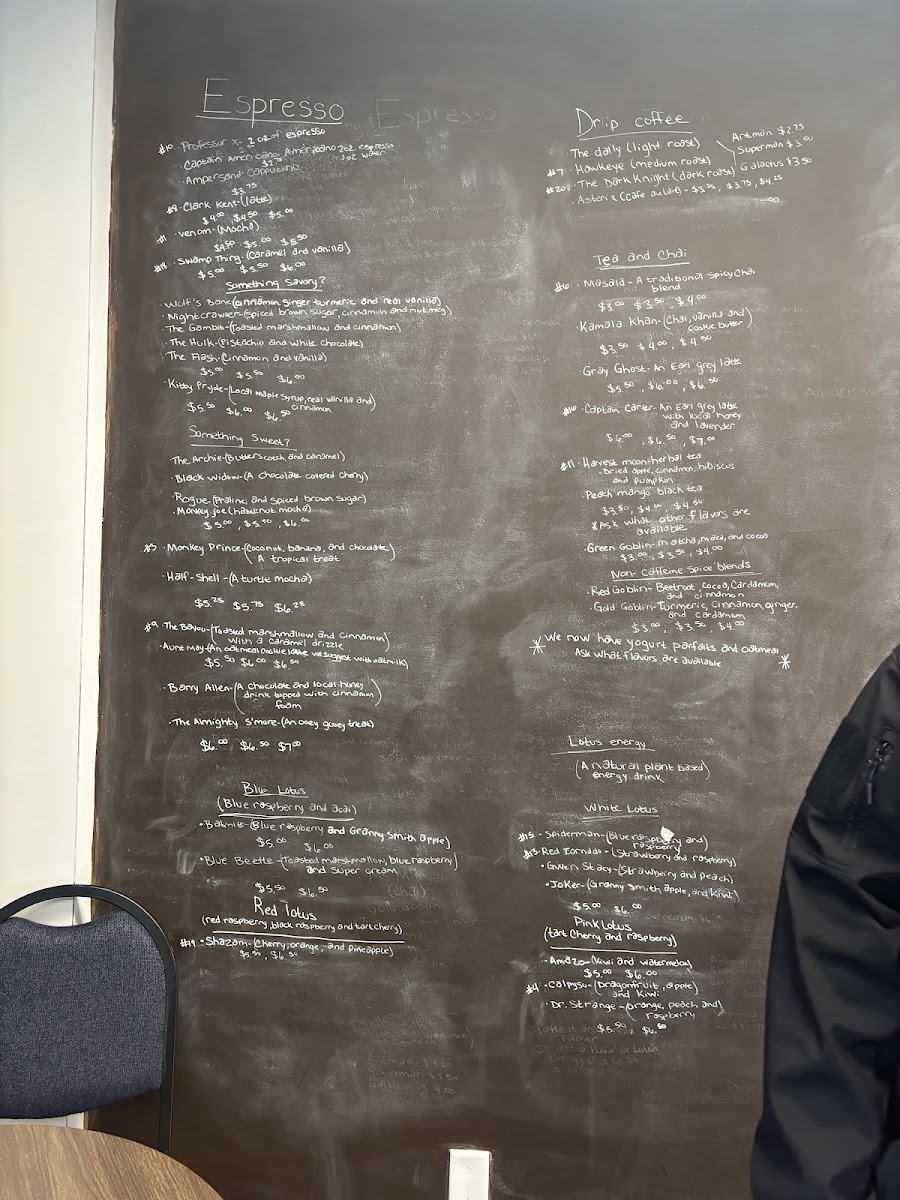 Espresso
#10 · Professor x- 2 oz of espresso
· Captain Americano- Americano 2oz. espresso
$2.75 3oz water
· Ampersand- Cappuccino
$3.75
#8 · Clark Kent- (latte)
$4.00 $4.50 $5.00
#1 · Venom- (Mocha)
$4.50 $5.00 $5.50
· Swamp Thing- (Caramel and vanilla)
$5.00 $5.50 $6.00
Something Savory?
· Wolf's bane (cinnamon ginger, turmeric and real vanilla)
· Nightcrawler- (Spiced brown sugar, cinnamon and nutmeg)
· The Gambit- (Toasted marshmallow and cinnamon)
· The Hulk- (Pistachio and white chocolate)
· The Flash- (Cinnamon and vanilla)
$5.00 $5.50 $6.00
· Kitty Pryde- (Local maple syrup, real vanilla and
cinnamon
$5.50 $6.00 $6.50
Something Sweet?
· The Archie- (Butterscotch, and caramel)
· Black widow- (A chocolate covered cherry)
· Rogue- (Praline, and spiced brown sugar)
· Monkey Joe (hazelnut mocha)
$5.00, $5.50, $6.00
· Monkey Prince- (Coconut, banana, and chocolate)
A tropical treat
· Half-Shell- (A turtle mocha)
$5.25 $5.75 $6.25
#9 · The Bayou- (Toasted marshmallow and cinnamon)
with a caramel drizzle
· Aunt May- (An oatmeal cookie latte we suggest with oatmilk)
$5.50 $6.00 $6.50
· Barry Allen- (A chocolate and local honey
drink topped with cinnamon
foam
· The Almighty S'more- (An ooey gooey treat)
$6.00 $6.50 $7.00
Blue Lotus
(Blue raspberry and acai)
(Blue raspberry and Granny Smith apple)
$5.00 $6.00
· Blue Beetle- (Toasted marshmallow, blue raspberry
and super cream
$5.50 $6.50
Red lotus
(red raspberry, black raspberry and tart cherry)
#19 · Shazam- (Cherry, orange, and pineapple)
$5.50, $6.50
Drip coffee
· The daily (light roast)
#7 · Hawkeye (medium roast)
· The Dark Knight (dark roast)
Antman $2.75
Superman $3.00
Galactus $3.50
· Asterix (cafe au lait) - $3.25, $3.75, $4.25
Tea and Chai
#6 · Masala - A traditional spicy chai
blend
$3.00 $3.50 $4.00
· Kamala Khan- (Chai, vanilla and
cookie butter)
$3.50 $4.00, $4.50
· Gray Ghost- An Earl grey latte
$5.50, $6.00, $6.50
· Captain Carter- An Earl grey latte
with local honey
and lavender
$6.00, $6.50, $7.00
#11 · Harvest moon- herbal tea
· Dried apple, cinnamon, hibiscus
and pumpkin
· Peach mango black tea
$3.50, $4.00, $4.50
*Ask what other flavors are
available
· Green Goblin- matcha, maca, and cocoa
$3.00, $3.50, $4.00
Non-Caffeine Spice blends
· Red Goblin- Beetroot, cocoa, Cardamom,
and cinnamon
· Gold Goblin- Turmeric, cinnamon, ginger,
and cardamom
$3.00, $3.50 $4.00
* We now have yogurt parfaits and oatmeal
Ask what flavors are available *
Lotus energy
(A natural plant based)
energy drink
White Lotus
#15 · Spiderman- (Blue raspberry and)
raspberry
#13 · Red Tornado- (Strawberry and raspberry)
· Gwen Stacy- (Strawberry and peach)
· Joker- (Granny Smith apple, and kiwi)
$5.00 $6.00
Pink Lotus
(tart cherry and raspberry)
· Amazo- (kiwi and watermelon)
$5.00 $6.00
#4 · Calpyso- (Dragonfruit, apple)
and kiwi
· Dr. Strange- (orange, peach and)
raspberry
$5.50, $6.50